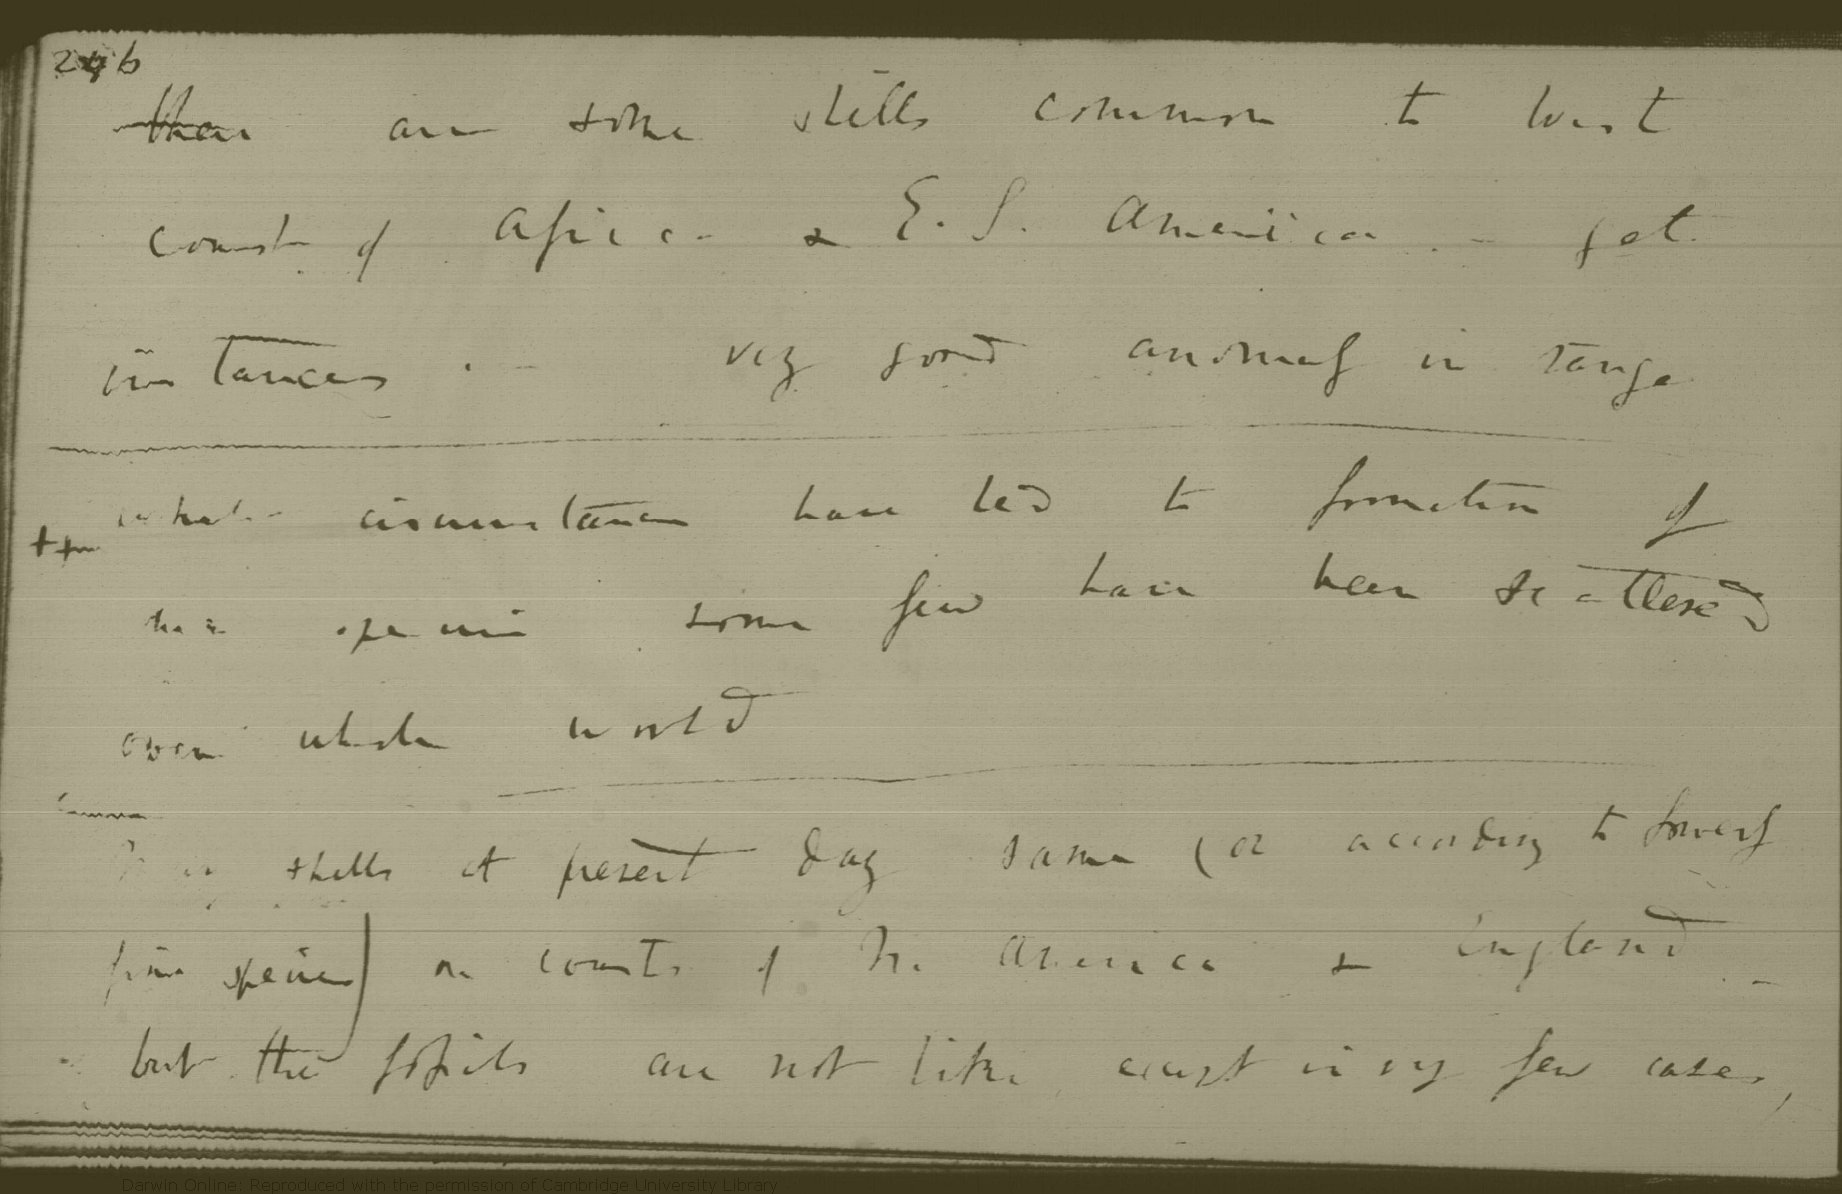 246
there are some shells common to West
coast of Africa & E. S. America. — get
instances. — very good anomaly in range
what circumstances have led to formation of
new species some few have been scattered
over whole world
shells at present day same (or according to Sowerby
fine species) on coasts of N. America & England
but the fossils are not like except in very few cases,
Darwin Online: Reproduced with the permission of Cambridge University Library